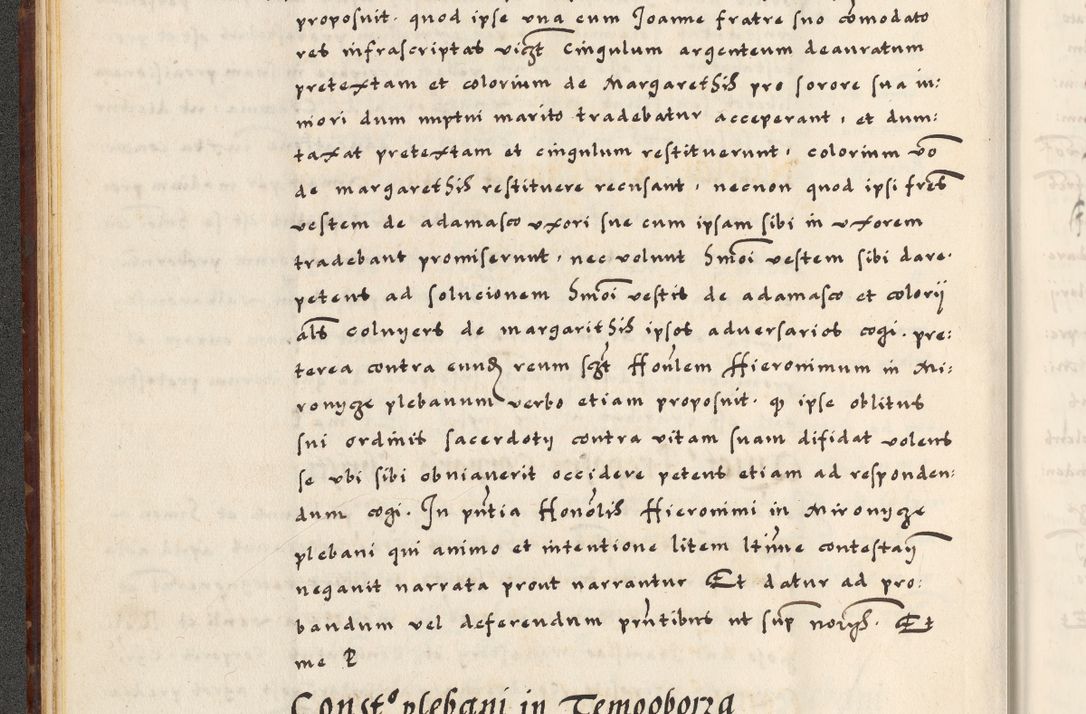 proposuit. quod ipse una cum Joanne fratre suo comodato
res infrascriptas vidzt Cingulum argenteum deauratum
pretextam et colorium de Margarethis pro sorore sua iu:
niori dum nuptui marito tradebatur acceperant, et dum:
taxat pretextam et cingulum restituerunt, colorium vo
de margarethis restituere recusant, necnon quod ipsi fres
vestem de adamasco uxori sue cum ipsam sibi in uxorem
tradebant promiserunt, nec volunt hmoi vestem sibi dare.
petens ad solucionem hmoi vestis de adamasco et colorij
als colnyers de margarithis ipsos adversarios cogi. pre:
terea contra eund reum sczt Honlem Hieronimum in Mi:
ronycze plebanum verbo etiam proposuit. q ipse oblitus
sui ordinis sacerdotij contra vitam suam difidat volens
se ubi sibi obviaverit occidere petens etiam ad responden:
dum cogi. In pntia Honolis Hieronimi in Mironycze
plebani qui animo et intentione litem ltime contestaij
negavit narrata prout narrantur Et datur ad pro:
bandum vel deferendum prntibus ut sup norghs. Et
me P
Constº plebani in Temooborza